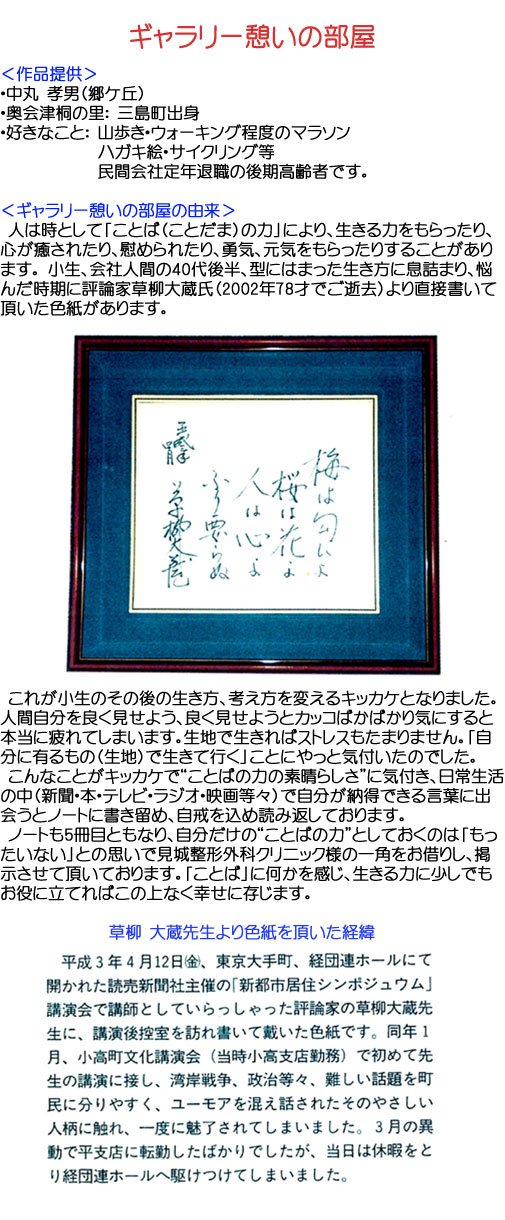 ギャラリー憩いの部屋
＜作品提供＞
・中丸 孝男（郷ケ丘）
・奥会津桐の里： 三島町出身
・好きなこと： 山歩き・ウォーキング程度のマラソン
ハガキ絵・サイクリング等
民間会社定年退職の後期高齢者です。
＜ギャラリー憩いの部屋の由来＞
人は時として「ことば（ことだま）の力」により、生きる力をもらったり、
心が癒されたり、慰められたり、勇気、元気をもらったりすることがあり
ます。 小生、会社人間の40代後半、型にはまった生き方に息詰まり、悩
んだ時期に評論家草柳大蔵氏（2002年78才でご逝去）より直接書いて
頂いた色紙があります。
梅は匂いよ
桜は花よ
人は心よ
ふり要らぬ
草柳大蔵
これが小生のその後の生き方、考え方を変えるキッカケとなりました。
人間自分を良く見せよう、良く見せようとカッコばかばかり気にすると
本当に疲れてしまいます。生地で生きればストレスもたまりません。「自
分に有るもの（生地）で生きて行く」ことにやっと気付いたのでした。
こんなことがキッカケで“ことばの力の素晴らしさ”に気付き、日常生活
の中（新聞・本・テレビ・ラジオ・映画等々）で自分が納得できる言葉に出
会うとノートに書き留め、自戒を込め読み返しております。
ノートも5冊目ともなり、自分だけの“ことばの力”としておくのは「もっ
たいない」との思いで見城整形外科クリニック様の一角をお借りし、掲
示させて頂いております。「ことば」に何かを感じ、生きる力に少しでも
お役に立てればこの上なく幸せに存じます。
草柳 大蔵先生より色紙を頂いた経緯
平成３年４月12日㈮、東京大手町、経団連ホールにて
開かれた読売新聞社主催の「新都市居住シンポジュウム」
講演会で講師としていらっしゃった評論家の草柳大蔵先
生に、講演後控室を訪れ書いて戴いた色紙です。同年１
月、小高町文化講演会（当時小高支店勤務）で初めて先
生の講演に接し、湾岸戦争、政治等々、難しい話題を町
民に分りやすく、ユーモアを混え話されたそのやさしい
人柄に触れ、一度に魅了されてしまいました。３月の異
動で平支店に転勤したばかりでしたが、当日は休暇をと
り経団連ホールへ駆けつけてしまいました。